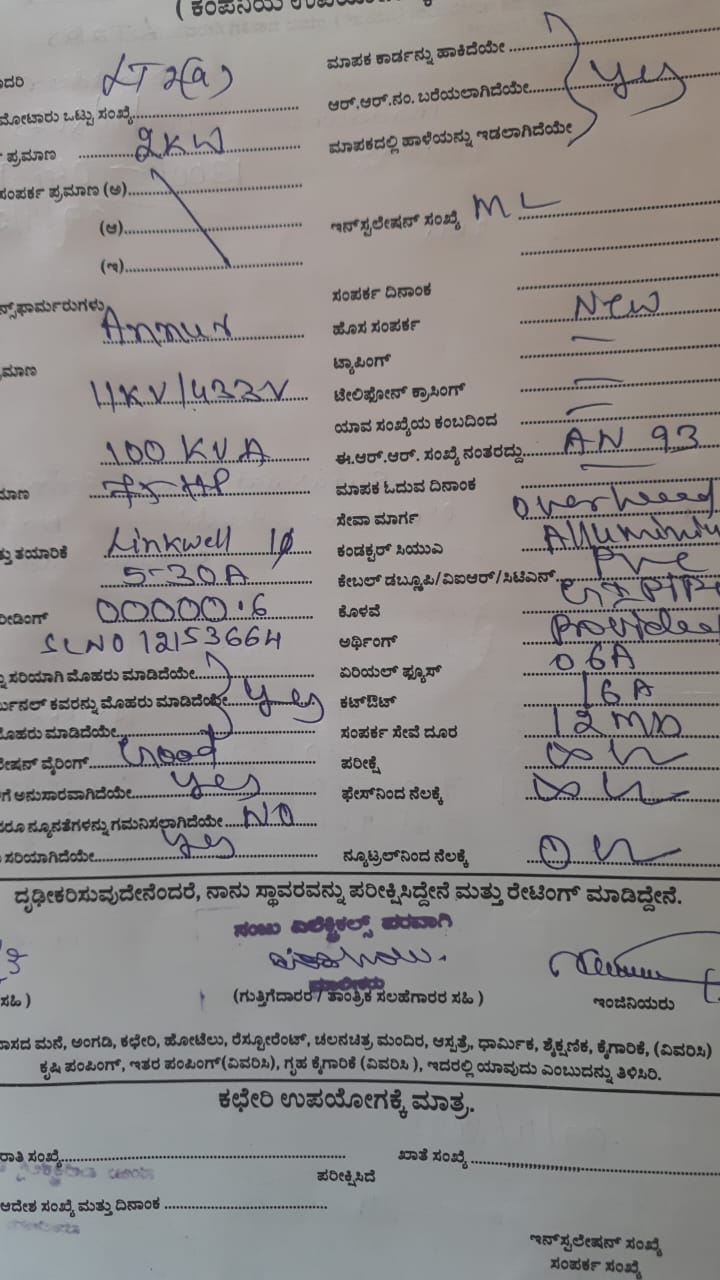 ( ಕಂಪನಿಯ
LT 2(a)
ಮಾಪಕ ಕಾರ್ಡನ್ನು ಹಾಕಿದೆಯೇ
ಮೋಟಾರು ಒಟ್ಟು ಸಂಖ್ಯೆ
ಆರ್.ಆರ್.ನಂ. ಬರೆಯಲಾಗಿದೆಯೇ Yes
ಪ್ರಮಾಣ 2KW
ಮಾಪಕದಲ್ಲಿ ಹಾಳೆಯನ್ನು ಇಡಲಾಗಿದೆಯೇ
ಸಂಪರ್ಕ ಪ್ರಮಾಣ (ಅ)
(ಆ)
ಇನ್‌ಸ್ಟಲೇಷನ್ ಸಂಖ್ಯೆ ML
(ಇ)
ಸಂಪರ್ಕ ದಿನಾಂಕ
ನ್ಸ್‌ಫಾರ್ಮರುಗಳು Annur
ಹೊಸ ಸಂಪರ್ಕ New
ಟ್ಯಾಪಿಂಗ್ —
11KV/433V
ಟೆಲಿಫೋನ್ ಕ್ರಾಸಿಂಗ್ —
ಯಾವ ಸಂಖ್ಯೆಯ ಕಂಬದಿಂದ —
100 KVA
ಈ.ಆರ್.ಆರ್. ಸಂಖ್ಯೆ ನಂತರದ್ದು AN 93
ಮಾಪಕ ಓದುವ ದಿನಾಂಕ —
ಸೇವಾ ಮಾರ್ಗ Overheed
ತು ತಯಾರಿಕೆ Linkwell 1φ
ಕಂಡಕ್ಟರ್ ಸಿಯುಎ
5-30A
ಕೇಬಲ್ ಡಬ್ಲೂಪಿ/ವಿಐಆರ್/ಸಿಟಿಎಸ್ PVC
ರೀಡಿಂಗ್ 00000.6
ಕೊಳವೆ
SLNO 12153664
ಅರ್ಥಿಂಗ್
ಸರಿಯಾಗಿ ಮೊಹರು ಮಾಡಿದೆಯೇ
ಏರಿಯಲ್ ಫ್ಯೂಸ್ 06A
ಕವರನ್ನು ಮೊಹರು ಮಾಡಿದೆಯೇ Yes
ಕಟ್‌ಔಟ್ 16A
ಮೊಹರು ಮಾಡಿದೆಯೇ
ಸಂಪರ್ಕ ಸೇವೆ ದೂರ
ವೈರಿಂಗ್ Good
ಪರೀಕ್ಷೆ
ಅನುಸಾರವಾಗಿದೆಯೇ Yes
ಫೇಸ್‌ನಿಂದ ನೆಲಕ್ಕೆ
ನ್ಯೂನತೆಗಳನ್ನು ಗಮನಿಸಲಾಗಿದೆಯೇ NO
ಸರಿಯಾಗಿದೆಯೇ Yes
ನ್ಯೂಟ್ರಲ್‌ನಿಂದ ನೆಲಕ್ಕೆ
ದೃಢೀಕರಿಸುವುದೇನೆಂದರೆ, ನಾನು ಸ್ಥಾವರವನ್ನು ಪರೀಕ್ಷಿಸಿದ್ದೇನೆ ಮತ್ತು ರೇಟಿಂಗ್ ಮಾಡಿದ್ದೇನೆ.
ಪರವಾಗಿ
ಮಾಲೀಕರು
ಸಹಿ )
(ಗುತ್ತಿಗೆದಾರರ / ತಾಂತ್ರಿಕ ಸಲಹೆಗಾರರ ಸಹಿ )
ಇಂಜಿನಿಯರು
ವಾಸದ ಮನೆ, ಅಂಗಡಿ, ಕಛೇರಿ, ಹೋಟೆಲು, ರೆಸ್ಟೋರೆಂಟ್, ಚಲನಚಿತ್ರ ಮಂದಿರ, ಆಸ್ಪತ್ರೆ, ಧಾರ್ಮಿಕ, ಶೈಕ್ಷಣಿಕ, ಕೈಗಾರಿಕೆ, (ವಿವರಿಸಿ)
ಕೃಷಿ ಪಂಪಿಂಗ್, ಇತರ ಪಂಪಿಂಗ್(ವಿವರಿಸಿ), ಗೃಹ ಕೈಗಾರಿಕೆ (ವಿವರಿಸಿ ), ಇದರಲ್ಲಿ ಯಾವುದು ಎಂಬುದನ್ನು ತಿಳಿಸಿರಿ.
ಕಛೇರಿ ಉಪಯೋಗಕ್ಕೆ ಮಾತ್ರ.
ಖಾತೆ ಸಂಖ್ಯೆ
ಪರೀಕ್ಷಿಸಿದೆ
ಆದೇಶ ಸಂಖ್ಯೆ ಮತ್ತು ದಿನಾಂಕ
ಇನ್‌ಸ್ಟಲೇಷನ್ ಸಂಖ್ಯೆ
ಸಂಪರ್ಕ ಸಂಖ್ಯೆ